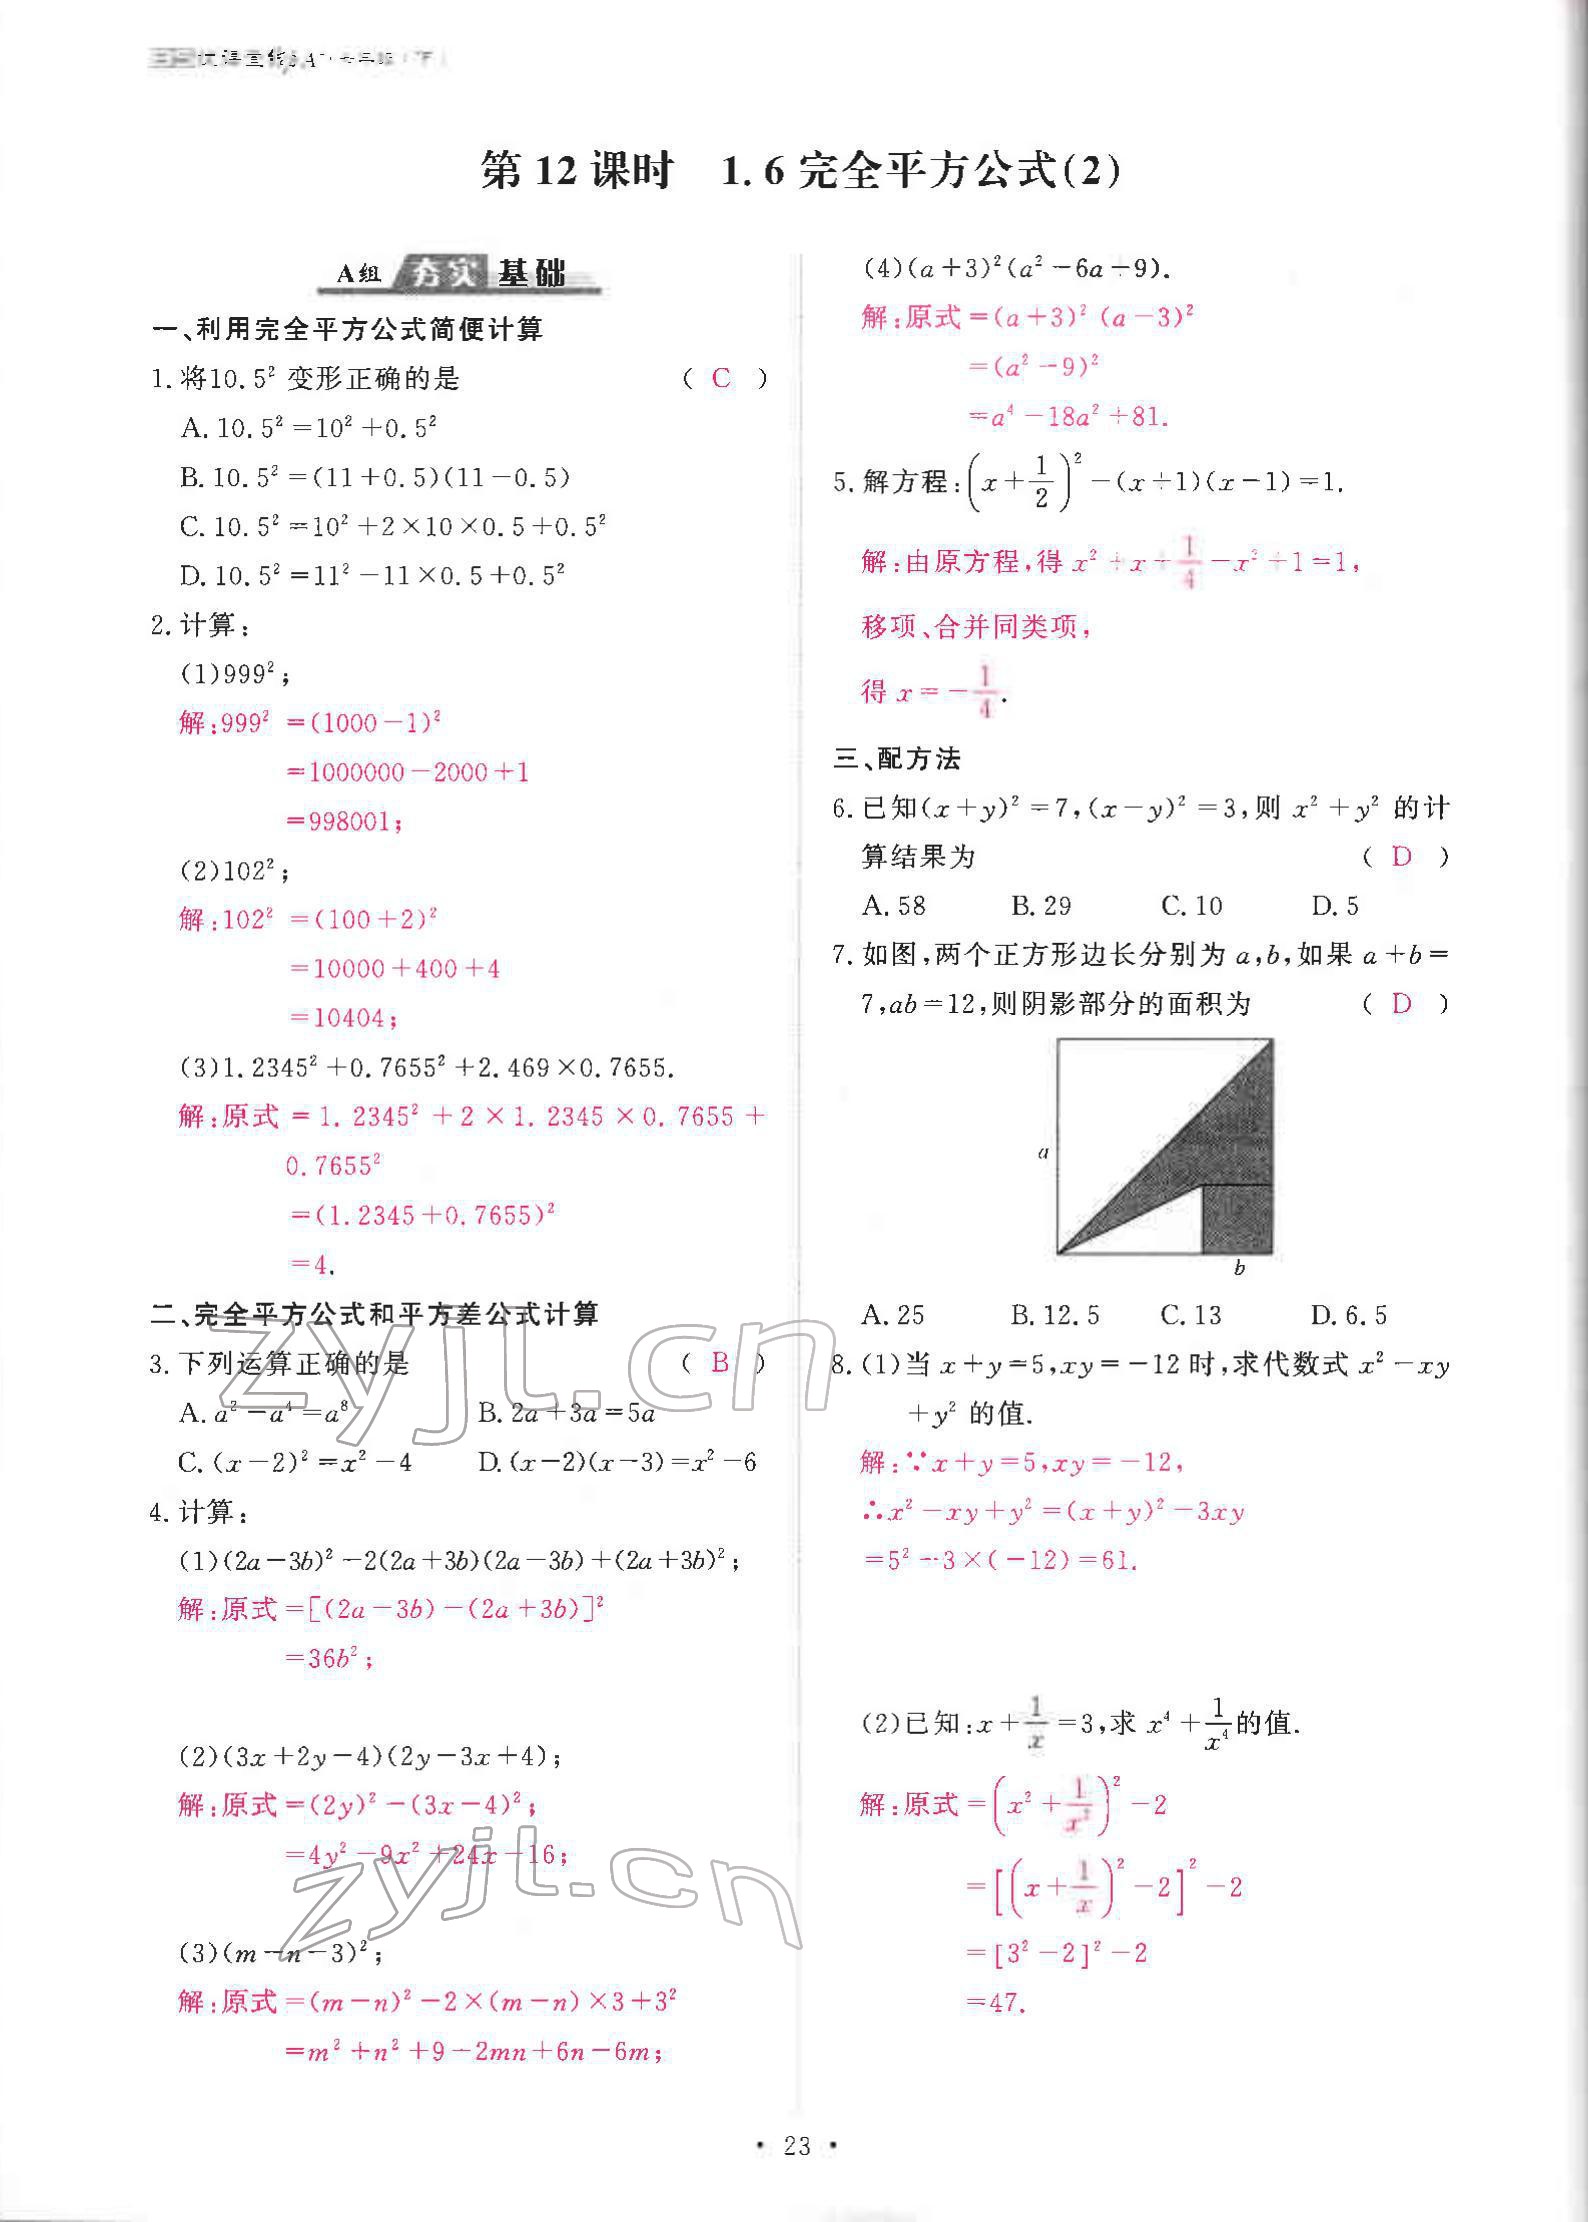 第 12 课时　1.6 完全平方公式(2)
A组 夯实 基础
一、利用完全平方公式简便计算
1. 将10.5² 变形正确的是 ( C )
A. 10.5²=10²+0.5²
B. 10.5²=(11+0.5)(11-0.5)
C. 10.5²=10²+2×10×0.5+0.5²
D. 10.5²=11²-11×0.5+0.5²
2. 计算:
(1)999²;
解:999² =(1000-1)²
=1000000-2000+1
=998001;
(2)102²;
解:102² =(100+2)²
=10000+400+4
=10404;
(3)1.2345²+0.7655²+2.469×0.7655.
解:原式 = 1.2345² + 2 × 1.2345 × 0.7655 +
0.7655²
=(1.2345+0.7655)²
=4.
二、完全平方公式和平方差公式计算
3. 下列运算正确的是 ( B )
A. a²-a⁴=a⁸ B. 2a+3a=5a
C. (x-2)²=x²-4 D. (x-2)(x-3)=x²-6
4. 计算:
(1)(2a-3b)²-2(2a+3b)(2a-3b)+(2a+3b)²;
解:原式=[(2a-3b)-(2a+3b)]²
=36b²;
(2)(3x+2y-4)(2y-3x+4);
解:原式=(2y)²-(3x-4)²;
=4y²-9x²+24x-16;
(3)(m-n-3)²;
解:原式=(m-n)²-2×(m-n)×3+3²
=m²+n²+9-2mn+6n-6m;
(4)(a+3)²(a²-6a+9).
解:原式=(a+3)²(a-3)²
=(a²-9)²
=a⁴-18a²+81.
5. 解方程:(x+1/2)²-(x+1)(x-1)=1.
解:由原方程,得 x²+x+1/4-x²+1=1,
移项、合并同类项,
得 x=-1/4.
三、配方法
6. 已知(x+y)²=7,(x-y)²=3,则 x²+y² 的计
算结果为 ( D )
A. 58 B. 29 C. 10 D. 5
7. 如图,两个正方形边长分别为 a,b,如果 a+b=
7,ab=12,则阴影部分的面积为 ( D )
a
b
A. 25 B. 12.5 C. 13 D. 6.5
8. (1)当 x+y=5,xy=-12 时,求代数式 x²-xy
+y² 的值.
解:∵x+y=5,xy=-12,
∴x²-xy+y²=(x+y)²-3xy
=5²-3×(-12)=61.
(2)已知:x+1/x=3,求 x⁴+1/x⁴的值.
解:原式=(x²+1/x²)²-2
=[(x+1/x)²-2]²-2
=[3²-2]²-2
=47.
zyjl.cn
zyjl.cn
• 23 •